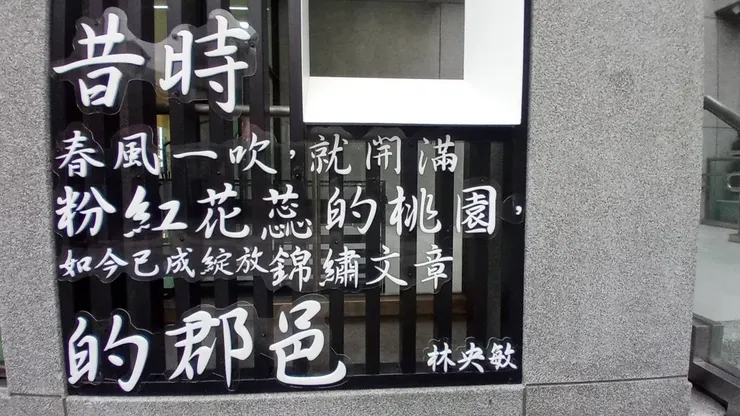 昔時
春風一吹，就開滿
粉紅花蕊的桃園，
如今已成綻放錦繡文章
的郡邑
林央敏